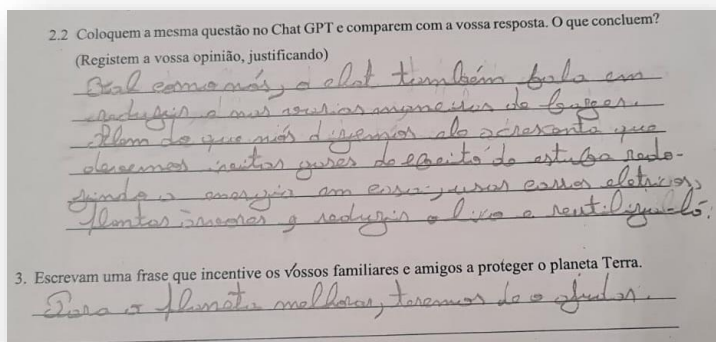 2.2 Coloquem a mesma questão no Chat GPT e comparem com a vossa resposta. O que concluem?
(Registem a vossa opinião, justificando)
Tal como nós, o chat também fala em
reduzir e nas várias maneiras de fazer.
Além do que nós dizemos ele acrescenta que
devemos evitar gases de efeito de estufa redu-
zindo a energia em casa, usar carros eletricos,
plantar árvores e reduzir o lixo e reutilizá-lo.
3. Escrevam uma frase que incentive os vossos familiares e amigos a proteger o planeta Terra.
Para o planeta melhorar, teremos de o ajudar.